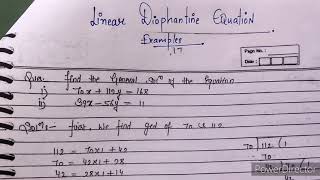 Linear Diophantine Equation
Examples
17
Page No. :
Date :
Ques:- find the General sol^n of the Equation
i) 70x + 112y = 168
ii) 39x - 56y = 11
Sol^n:- first, we find gcd of 70 & 112
112 = 70x1 + 42
70 = 42x1 + 28
42 = 28x1 + 14
70 112 (1
- 70
42